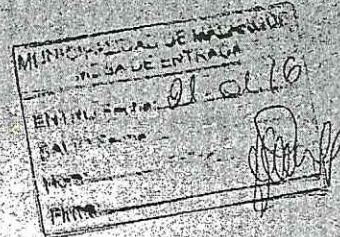 MUNICIPALIDAD DE MALARGUE
MESA DE ENTRADA
ENTRO Fecha:
SALIO Fecha
Hora
Firma